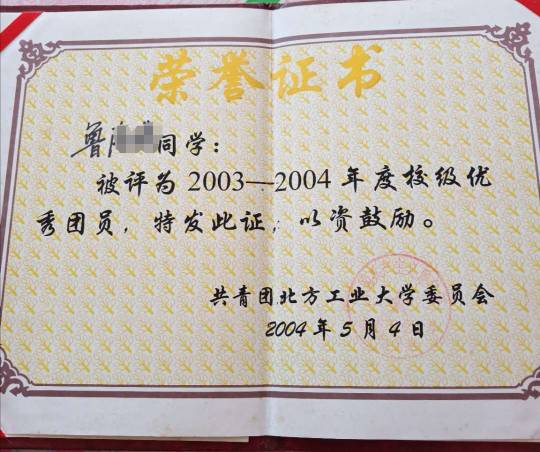 荣誉证书
鲁 同学：
被评为2003—2004年度校级优
秀团员，特发此证，以资鼓励。
共青团北方工业大学委员会
2004年5月4日